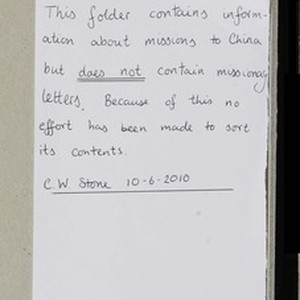 This folder contains inform-
ation about missions to China
but does not contain missionary
letters. Because of this no
effort has been made to sort
its contents.
C.W. Stone 10-6-2010